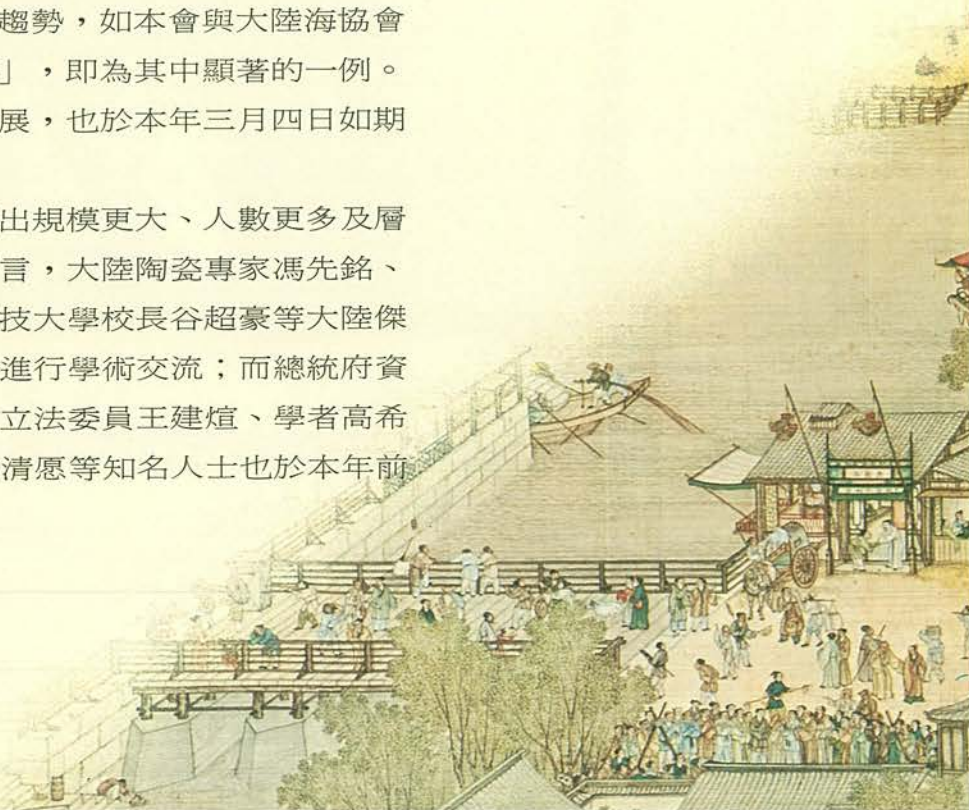 趨勢，如本會與大陸海協會
」，即為其中顯著的一例。
展，也於本年三月四日如期
出規模更大、人數更多及層
言，大陸陶瓷專家馮先銘、
技大學校長谷超豪等大陸傑
進行學術交流；而總統府資
立法委員王建煊、學者高希
清愿等知名人士也於本年前